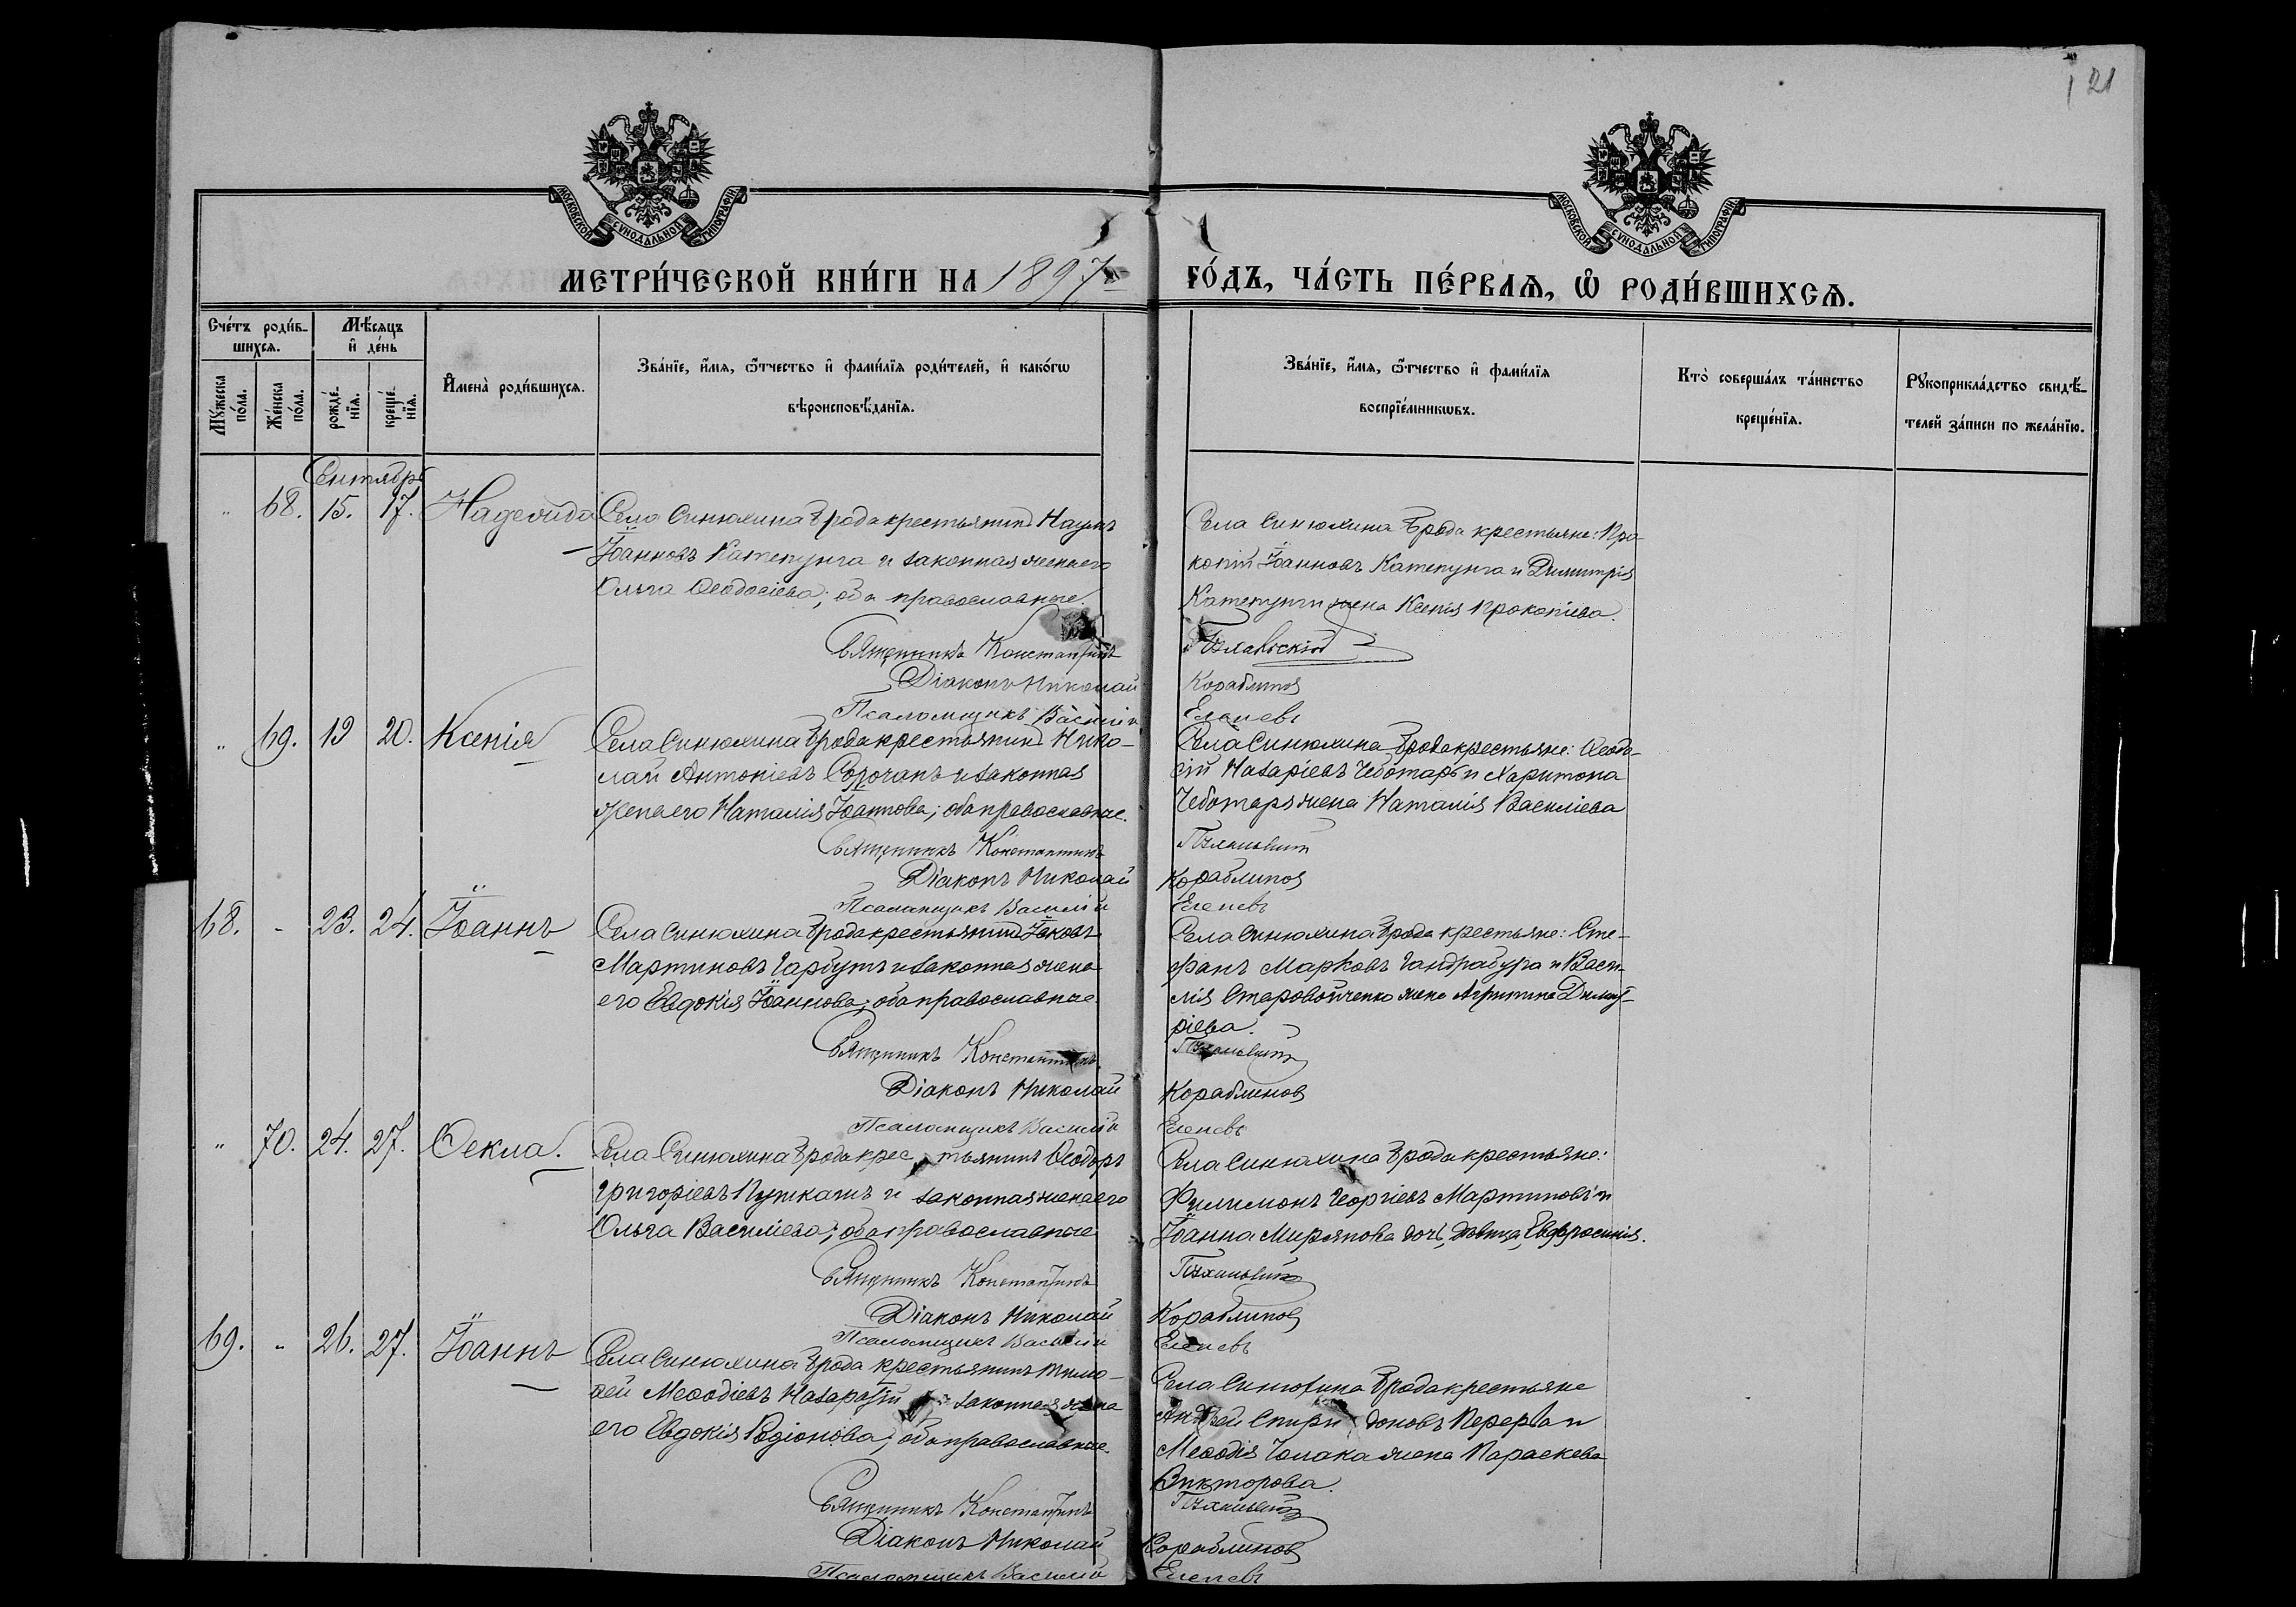 21
МОСКОВСКОЙ СѴНОДАЛЬНОЙ ТИПОГРАФІИ
МОСКОВСКОЙ СѴНОДАЛЬНОЙ ТИПОГРАФІИ
МЕТРИ́ЧЕСКОЙ КНИ́ГИ НА 1897 ГО́ДЪ, ЧА́СТЬ ПЕ́РВАѦ, Ѽ РОДИ́ВШИХСѦ.
Сче́тъ роди́в-
шихсѧ.
Мѣ́сяцъ
и҆ де́нь
Мꙋ́жеска
по́ла.
Же́нска
по́ла.
рожде́-
нїѧ.
креще́-
нїѧ.
И҆мена̀ роди́вшихсѧ.
Зва́нїе, и҆́мѧ, ѻ҆́тчество и҆ фами́лїѧ роди́телей, и҆ како́гѡ
вѣроисповѣ́данїѧ.
Зва́нїе, и҆́мѧ, ѻ҆́тчество и҆ фами́лїѧ
воспрїе́мникѡвъ.
Кто̀ соверша́лъ та́инство
креще́нїѧ.
Рꙋкоприкла́дство свидѣ́-
телей за́писи по жела́нїю.
Сентябрь
" 68. 15. 17. Надежда
Села Синюхина Брода крестьянинъ Наумъ
Іоанновъ Катепунга и законная жена его
Ольга Ѳеодосіева; оба православные.
Села Синюхина Брода крестьяне: Про-
копій Іоанновъ Катепунга и Димитрія
Катепунги жена Ксенія Прокопіева.
Священникъ Константинъ
Діаконъ Николай Кораблиновъ
Псаломщикъ Василій
" 69. 19 20. Ксенія
Села Синюхина Брода крестьянинъ Нико-
лай Антоніевъ Сорочанъ и законная
жена его Наталія Іоаннова; оба православные.
Села Синюхина Брода крестьяне: Ѳеодо-
сій Назаріевъ Чеботарь и Харитона
Чеботаря жена Наталія Василіева
Священникъ Константинъ
Діаконъ Николай Кораблиновъ
Псаломщикъ Василій
68. " 23. 24. Іоаннъ
Села Синюхина Брода крестьянинъ Іаковъ
Мартиновъ Гарбутъ и законная жена
его Евдокія Іоаннова; оба православные
Села Синюхина Брода крестьяне: Сте-
фанъ Марковъ Гандрабура и Васи-
лія Старовойченко жена Агрипина Димит-
ріева.
Священникъ Константинъ
Діаконъ Николай Кораблиновъ
Псаломщикъ Василій
" 70. 24. 27. Ѳекла.
Села Синюхина Брода крестьянинъ Ѳеодоръ
Григоріевъ и законная жена его
Ольга Василіева; оба православные
Села Синюхина Брода крестьяне:
Филимонъ Георгіевъ Мартиновъ и
Іоанна Мирянова дочь, дѣвица, Евфросинія.
Священникъ Константинъ
Діаконъ Николай Кораблиновъ
Псаломщикъ Василій
69. " 26. 27. Іоаннъ
Села Синюхина Брода крестьянинъ Тимо-
ѳей Меѳодіевъ и законная жена
его Евдокія Родіонова; оба православные
Села Синюхина Брода крестьяне
Андрей Спиридоновъ и
Меѳодія жена Параскева
Викторова.
Священникъ Константинъ
Діаконъ Николай Кораблиновъ
Псаломщикъ Василій